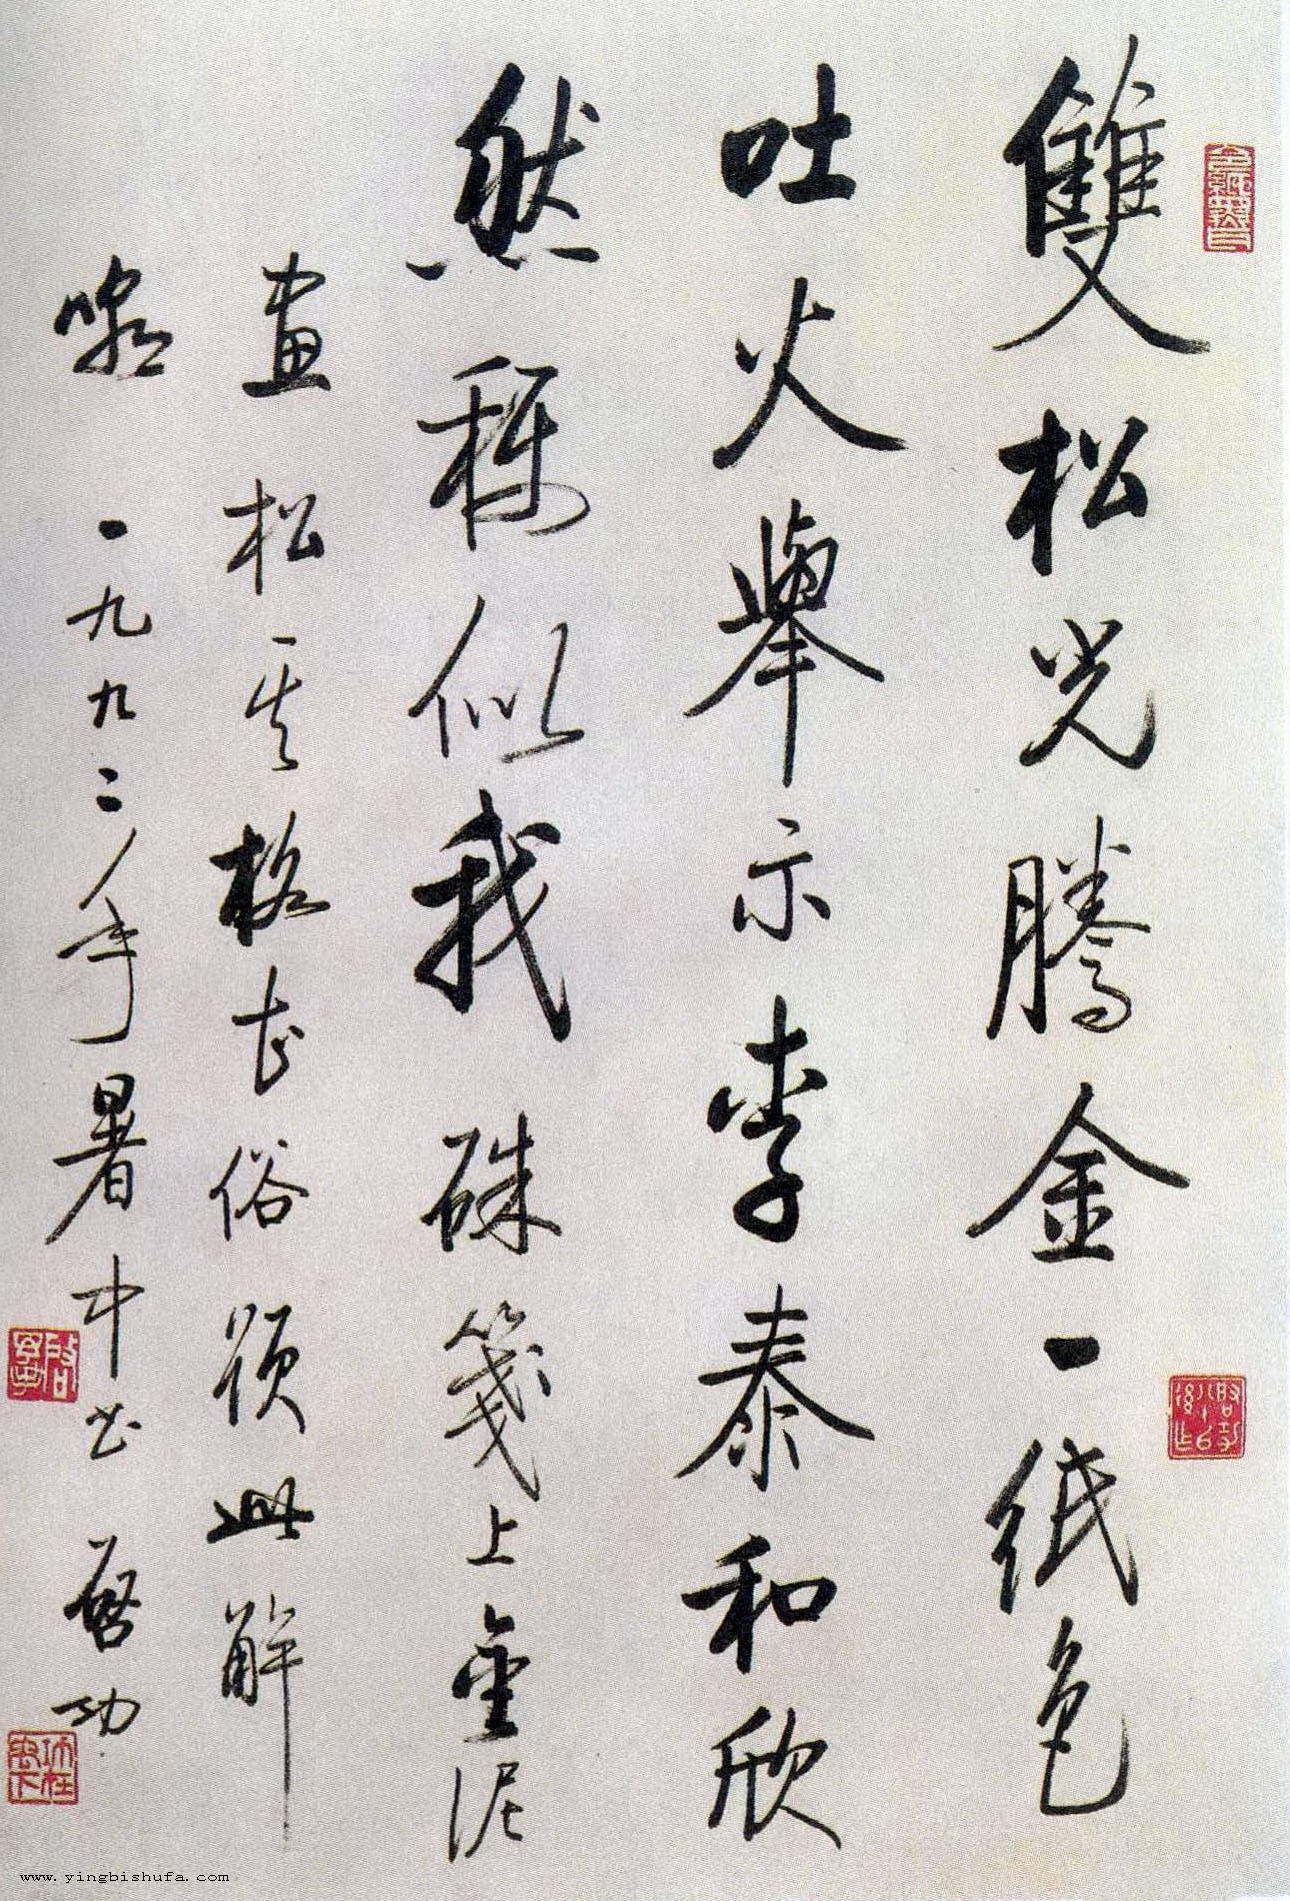 雙松光騰金一紙色
吐火舉示李泰和欣
然稱似我 硃箋上金泥
畫松其格甚俗須此解
嘲 一九九二年暑中書 啓功
www.yingbishufa.com